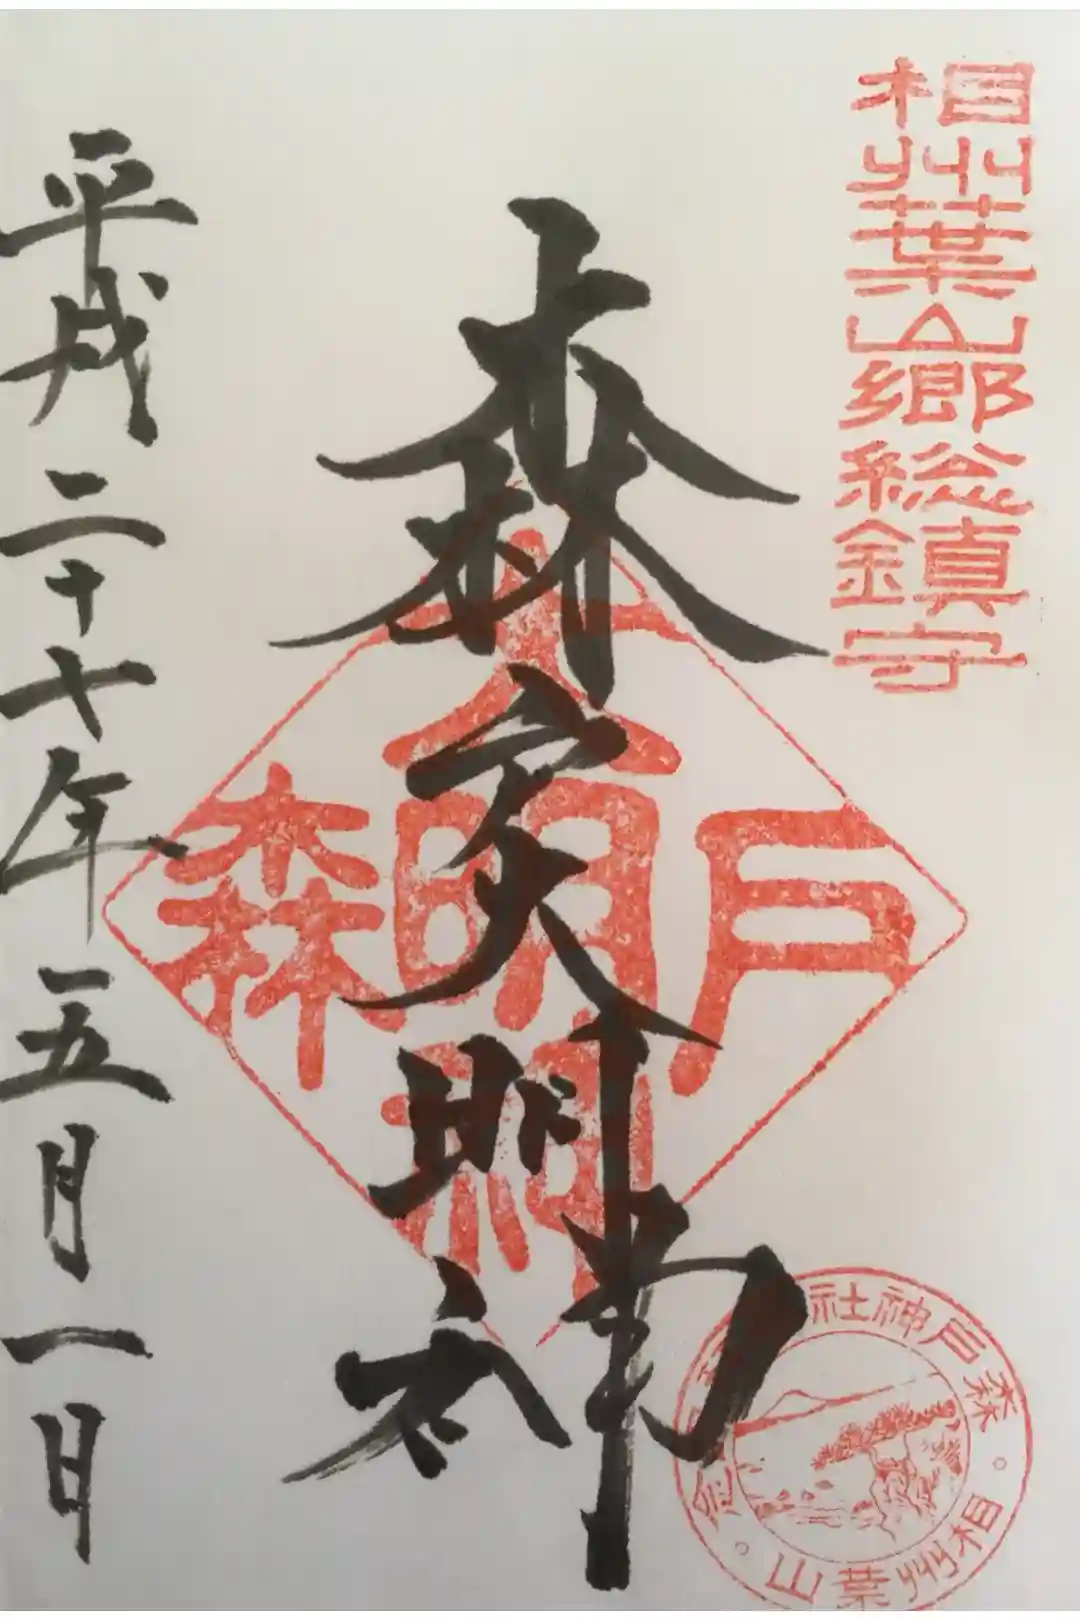 相州葉山郷総鎮守
森戸大明神
大明神
森戸
平成二十七年五月一日
森戸神社
念
相州葉山